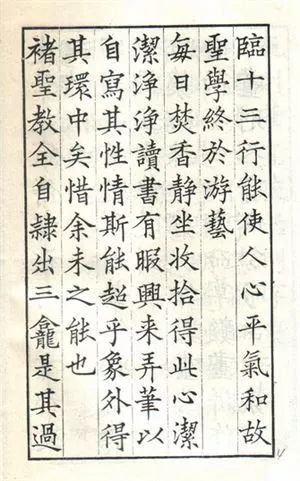 臨十三行能使人心平氣和故
聖學終於游藝
每日焚香静坐收拾得此心潔
潔淨淨讀書有暇興来弄筆以
自寫其性情斯能超乎象外得
其環中矣惜余未之能也
褚聖教全自隷出三龕是其過